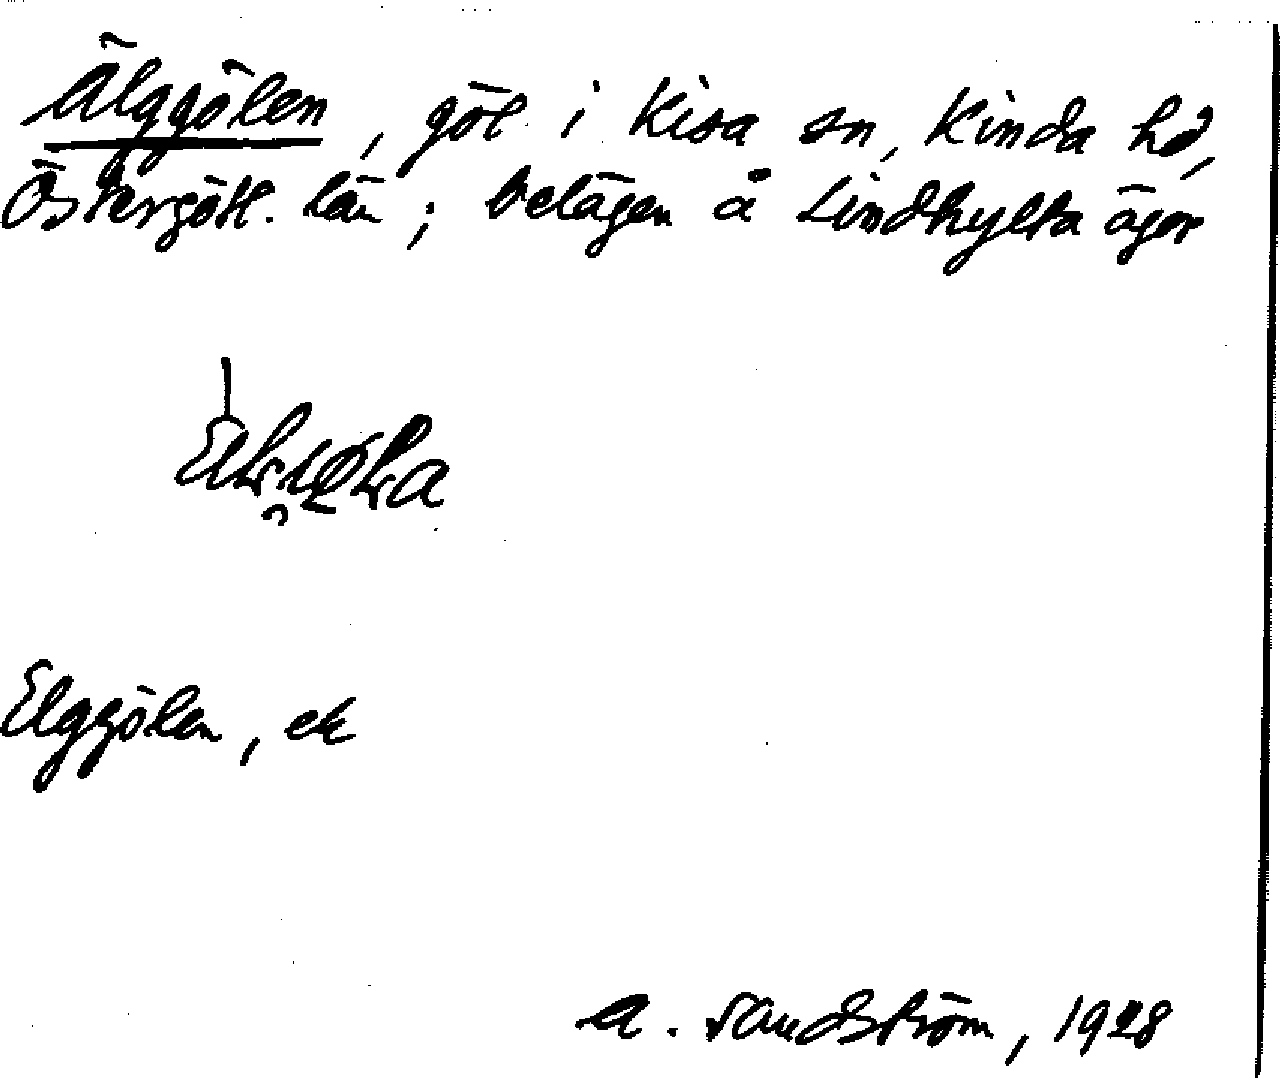 Älggölen, göl i Kisa sn, Kinda hd,
Östergötl. län; belägen å Lindhylta ägor
Elggölen, ek
A. Sandström, 1928